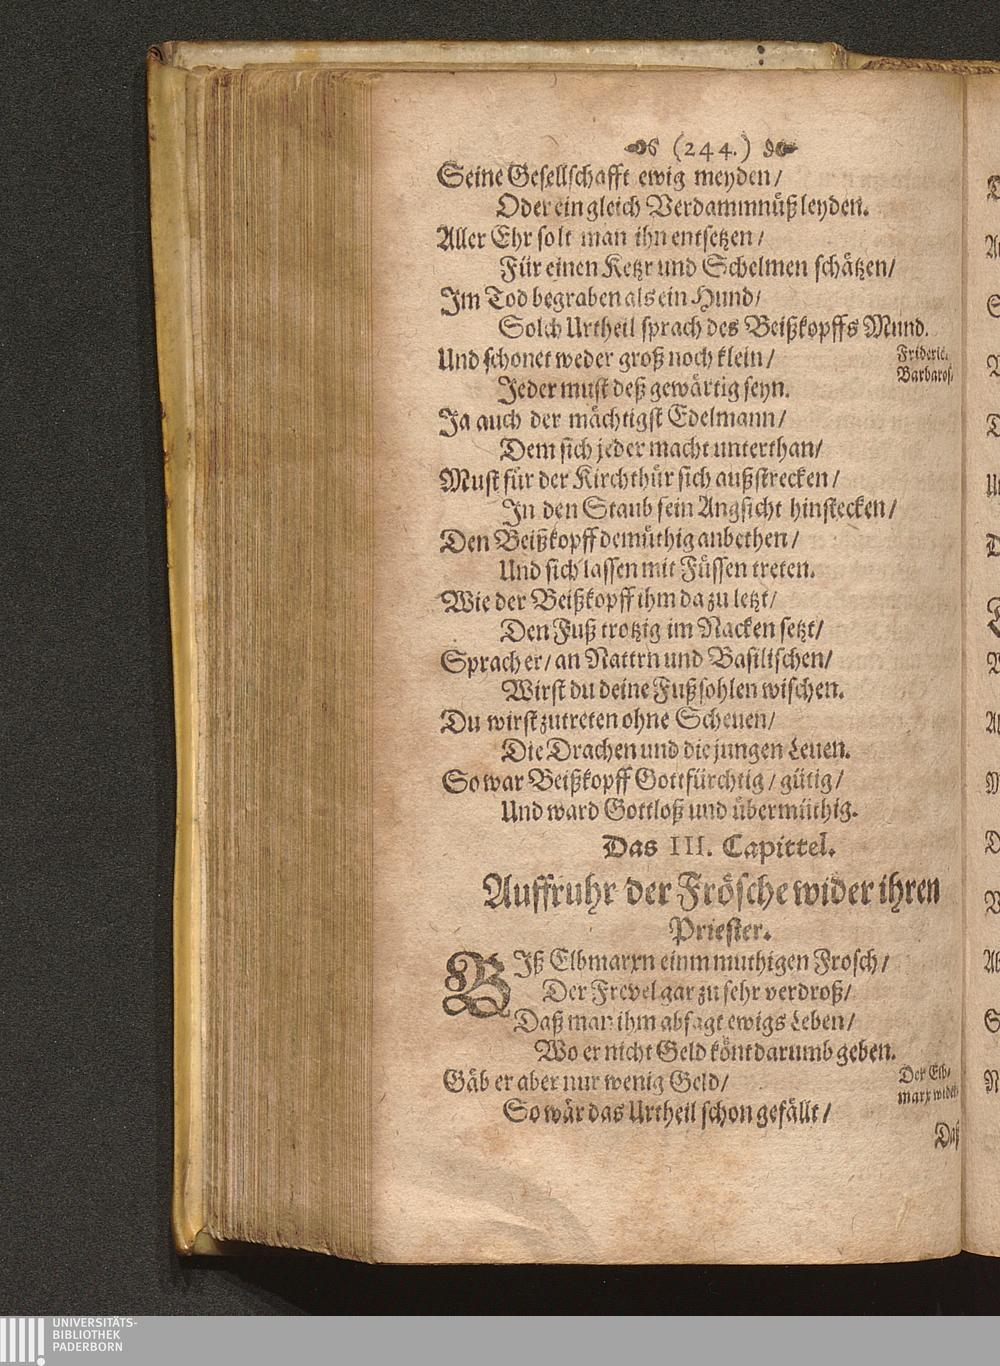 (244.)
Seine Gesellschafft ewig meyden/
Oder ein gleich Verdammnüß leyden.
Aller Ehr solt man ihn entsetzen/
Für einen Ketzr und Schelmen schätzen/
Im Tod begraben als ein Hund/
Solch Urtheil sprach des Beißkopffs Mund.
Und schonet weder groß noch klein/
Frideric.
Barbaros.
Jeder must deß gewärtig seyn.
Ja auch der mächtigst Edelmann/
Dem sich jeder macht unterthan/
Must für der Kirchthür sich außstrecken/
In den Staub sein Angsicht hinstecken/
Den Beißkopff demüthig anbethen/
Und sich lassen mit Füssen treten.
Wie der Beißkopff ihm da zu letzt/
Den Fuß trotzig im Nacken setzt/
Sprach er/ an Nattrn und Basilischen/
Wirst du deine Fußsohlen wischen.
Du wirst zutreten ohne Scheuen/
Die Drachen und die jungen Leuen.
So war Beißkopff Gottfürchtig/ gütig/
Und ward Gottloß und übermüthig.
Das III. Capittel.
Auffruhr der Frösche wider ihren
Priester.
BIß Elbmarxn einm muthigen Frosch/
Der Frevel gar zu sehr verdroß/
Daß man ihm absagt ewigs Leben/
Wo er nicht Geld könt darumb geben.
Gäb er aber nur wenig Geld/
Der Elb-
marx
So wär das Urtheil schon gefällt/
Daß
UNIVERSITÄTS-
BIBLIOTHEK
PADERBORN